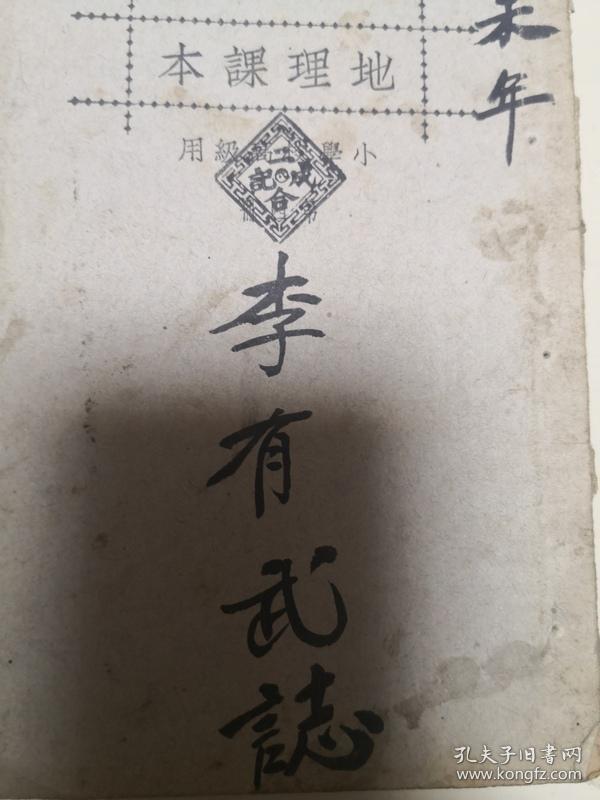 未年
本課理地
用級高學小
成記合
李有武誌
孔夫子旧书网
www.kongfz.com